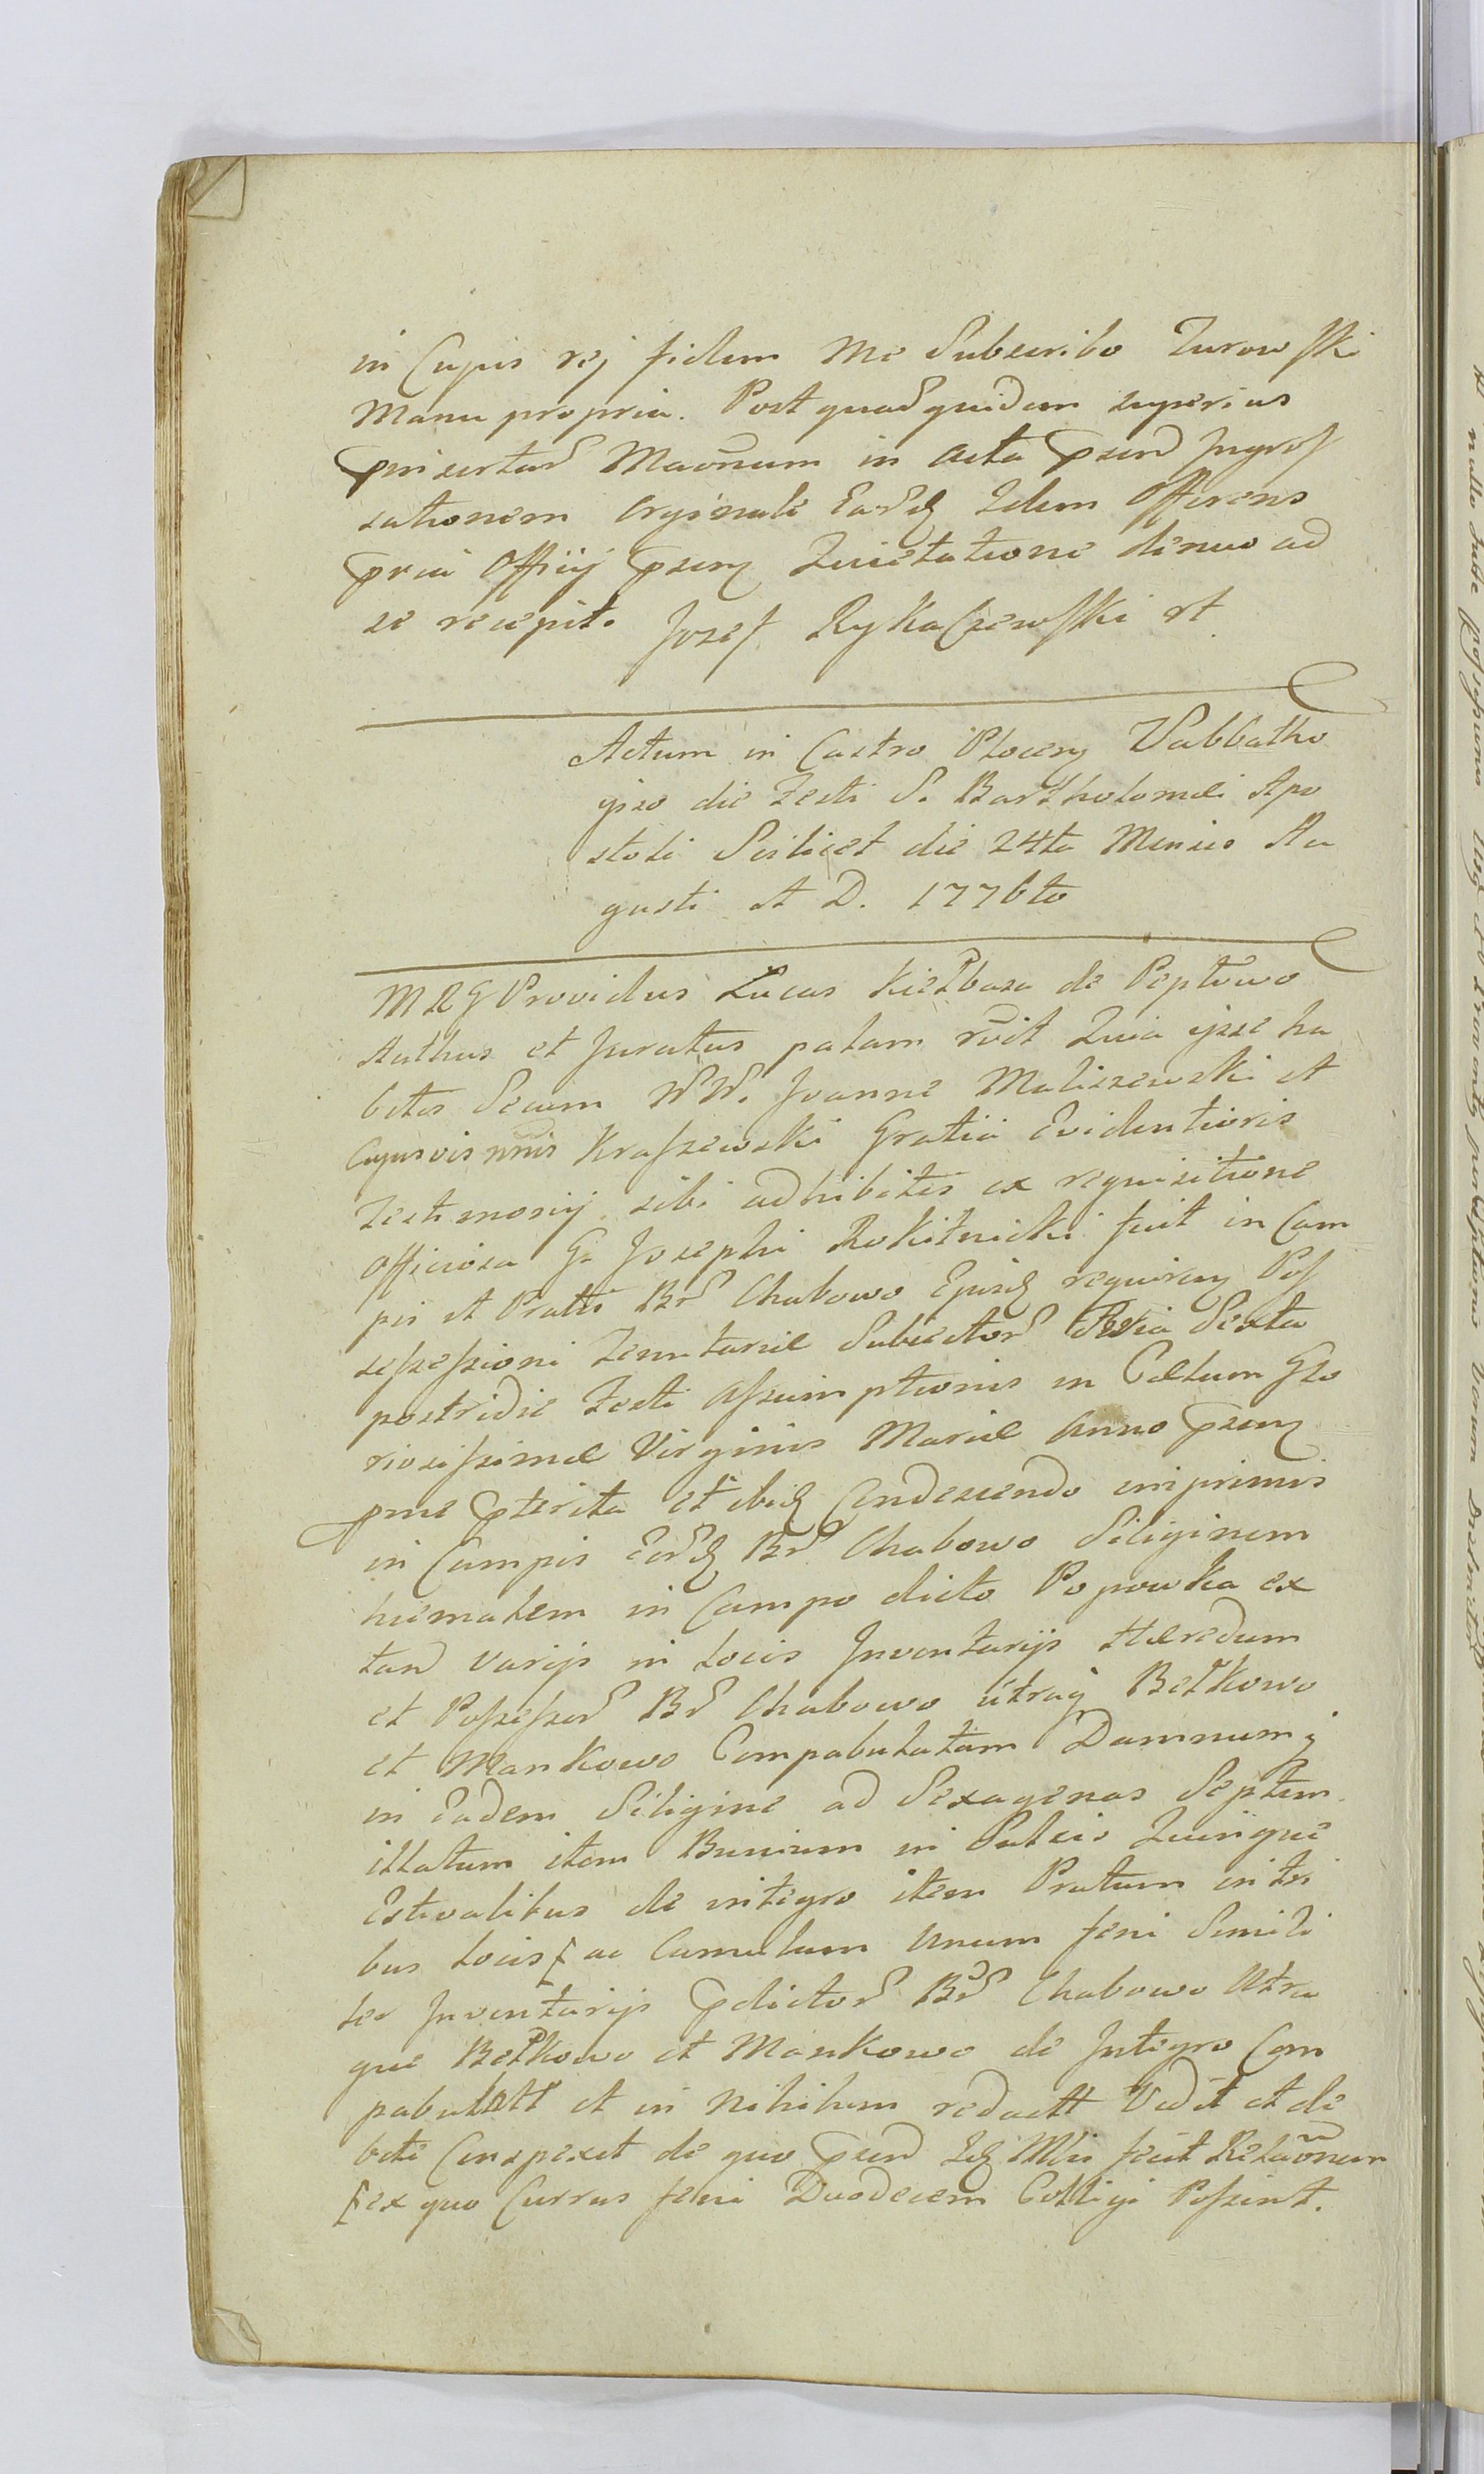 in Cujus rej fidem Me Subscribo Turowski
Manu propria. Post quas quidem superius
prinsertas Maōnum in Acta psend Jngros
sationem Orginali Easdꝫ Idem Offerens
pria Officij psenꝫ Quietatione denuo ad
se recepit. Jozef RykaCzewski rt
Actum in Castro Plocenꝫ Sabbatho
ipso die Festi S. Bartholomei Apo
stoli Scilicet die 24ta Mensis Au
gusti A D. 1776to
M R G Providus Lucas Kiełbasa de Peptowo
Authus et Juratus palam rūit Quia ipse ha
bitis Secum WW. Joanne Maliszewski et
Cujusvis nn̄is Kraszewski Gratia Evidentioris
Testimonij sibi adhibitis ex requisitione
Officiosa G. Josephi Rokitnicki fuit in Cam
pis et Pratis Br Chabowo Ejusdꝫ requirenꝫ Pos
sessessioni Tenutariæ Subiector Feria Sexta
postridie Festi Assumptionis in Cœlum Glo
riosissimæ Virginis Mariæ Anno psenꝫ
pme pterita et ibidꝫ Condescendo imprimis
in Campis Eordꝫ Br Chabowo Siliginem
hiemalem in Campo dicto Popowka ex
tand varijs in Locis Jnventarijs Hæredum
et Possessor Br Chabowo utraq Bełkowo
et Mankowo Compabulatam Damnumq
in Eadem Siligine ad Sexagenas Septem
illatum item Bunium in Sulcis Quinque
Estivalibus de integro item Pratum in tri
bus Locis [ ac Cumulum Unum feni Simili
ter Jnventarijs pdictor Br Chabowo Utra
que Bełkowo et Mankowo de Jntegro Com
pabulatt et in Nihilum redactt Vidit et de
bite Conspexit de quo psend Idꝫ Mlis fecit Relaōnem
[ ex quo Currus feni Duodecem Colligi Possint.